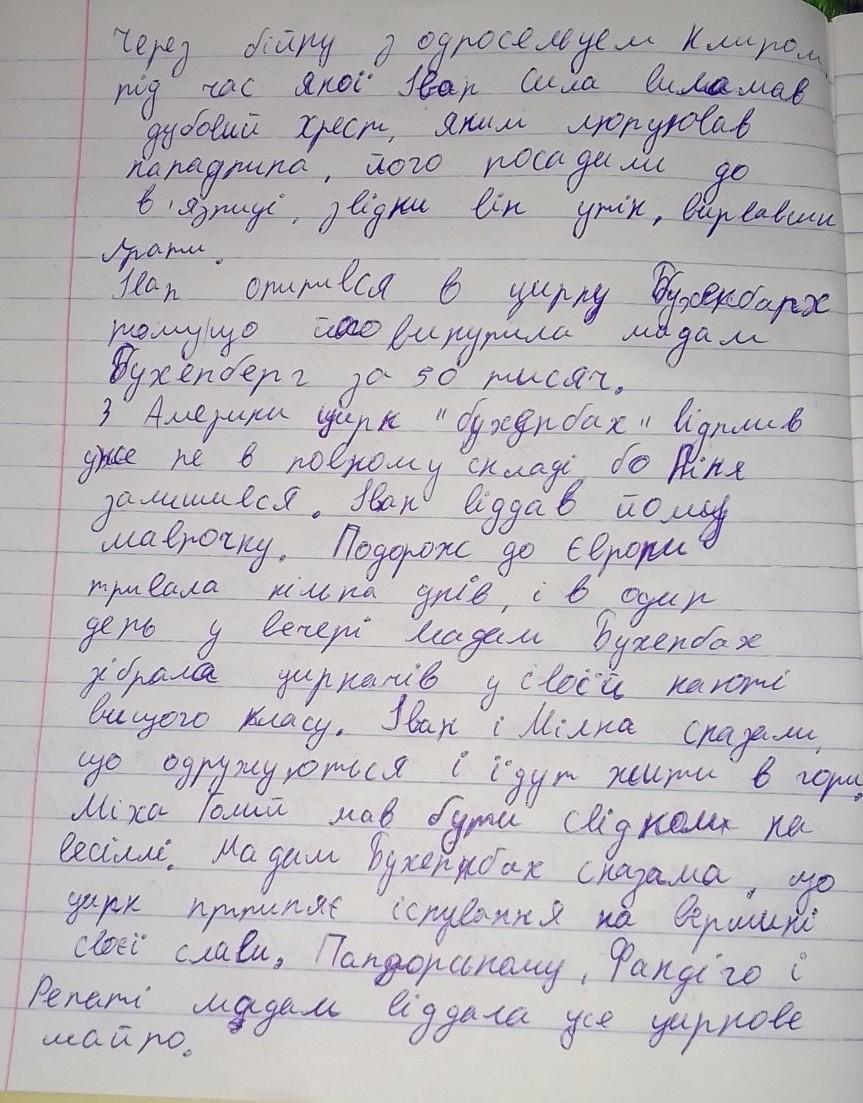 Через бійку з односельцем Клиром,
під час якої Іван Сила виламав
дубовий хрест, яким люрував
нападника, його посадили до
в'язниці, звідки він утік, вирвавши
грати.
Іван опинився в цирку Бухенбарх
тому що його викупила мадам
Бухенберг за 50 тисяч.
З Америки цирк "бухенбах" відплив
уже не в повному складі, бо Піня
залишився. Іван віддав йому
маврочку. Подорож до Європи
тривала кілька днів, і в один
день у вечері мадам Бухенбах
зібрала циркачів у своєй каюті
вищого класу. Іван і Мілка сказали,
що одружуються і їдут жити в гори.
Міха Голий мав бути свідком на
весіллі. Мадам Бухенбах сказала, що
цирк припиняє існування на вершині
своєї слави. Пандорському, Фандіго і
Ренаті мадам віддала усе циркове
майно.